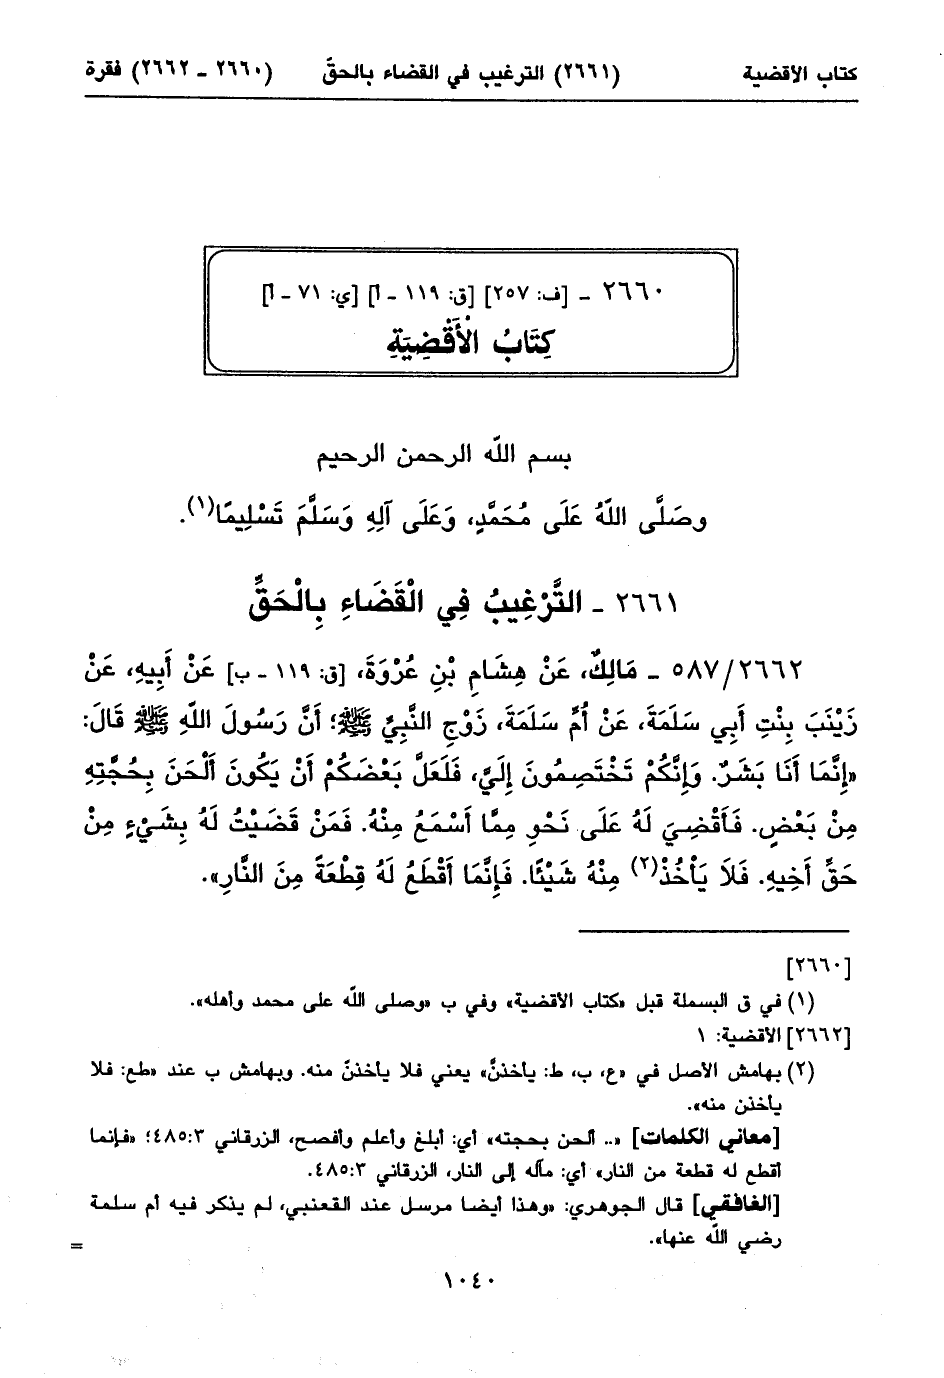 كتاب الأقضية (٢٦٦١) الترغيب في القضاء بالحقّ (٢٦٦٠ - ٢٦٦٢) فقرة
٢٦٦٠ - [ف: ٢٥٧] [ق: ١١٩ - أ] [ي: ٧١ - أ]
كِتَابُ الْأَقْضِيَةِ
بسم اللّه الرحمن الرحيم
وصَلَّى اللّهُ عَلَى مُحَمَّدٍ، وَعَلَى آلِهِ وَسَلَّمَ تَسْلِيمًا(١).
٢٦٦١ - التَّرْغِيبُ فِي الْقَضَاءِ بِالْحَقِّ
٥٨٧/٢٦٦٢ - مَالِكٌ، عَنْ هِشَامِ بْنِ عُرْوَةَ، [ق: ١١٩ - ب] عَنْ أَبِيهِ، عَنْ
زَيْنَبَ بِنْتِ أَبِي سَلَمَةَ، عَنْ أُمِّ سَلَمَةَ، زَوْجِ النَّبِيِّ ﷺ؛ أَنَّ رَسُولَ اللّهِ ﷺ قَالَ:
«إِنَّمَا أَنَا بَشَرٌ. وَإِنَّكُمْ تَخْتَصِمُونَ إِلَيَّ، فَلَعَلَّ بَعْضَكُمْ أَنْ يَكُونَ أَلْحَنَ بِحُجَّتِهِ
مِنْ بَعْضٍ. فَأَقْضِيَ لَهُ عَلَى نَحْوِ مِمَّا أَسْمَعُ مِنْهُ. فَمَنْ قَضَيْتُ لَهُ بِشَيْءٍ مِنْ
حَقِّ أَخِيهِ. فَلاَ يَأْخُذْ(٢) مِنْهُ شَيْئًا. فَإِنَّمَا أَقْطَعُ لَهُ قِطْعَةً مِنَ النَّارِ».
[٢٦٦٠]
(١) في ق البسملة قبل «كتاب الأقضية» وفي ب «وصلى اللّه على محمد وأهله».
[٢٦٦٢] الأقضية: ١
(٢) بهامش الأصل في «ع، ب، ط: يأخذنَّ» يعني فلا يأخذنّ منه. وبهامش ب عند «طع: فلا
يأخذن منه».
[معاني الكلمات] «.. ألحن بحجته» أي: أبلغ وأعلم وأفصح، الزرقاني ٤٨٥:٣؛ «فإنما
أقطع له قطعة من النار» أي: مآله إلى النار، الزرقاني ٤٨٥:٣.
[الغافقي] قال الجوهري: «وهذا أيضا مرسل عند القعنبي، لم يذكر فيه أم سلمة
رضي اللّه عنها».
=
١٠٤٠